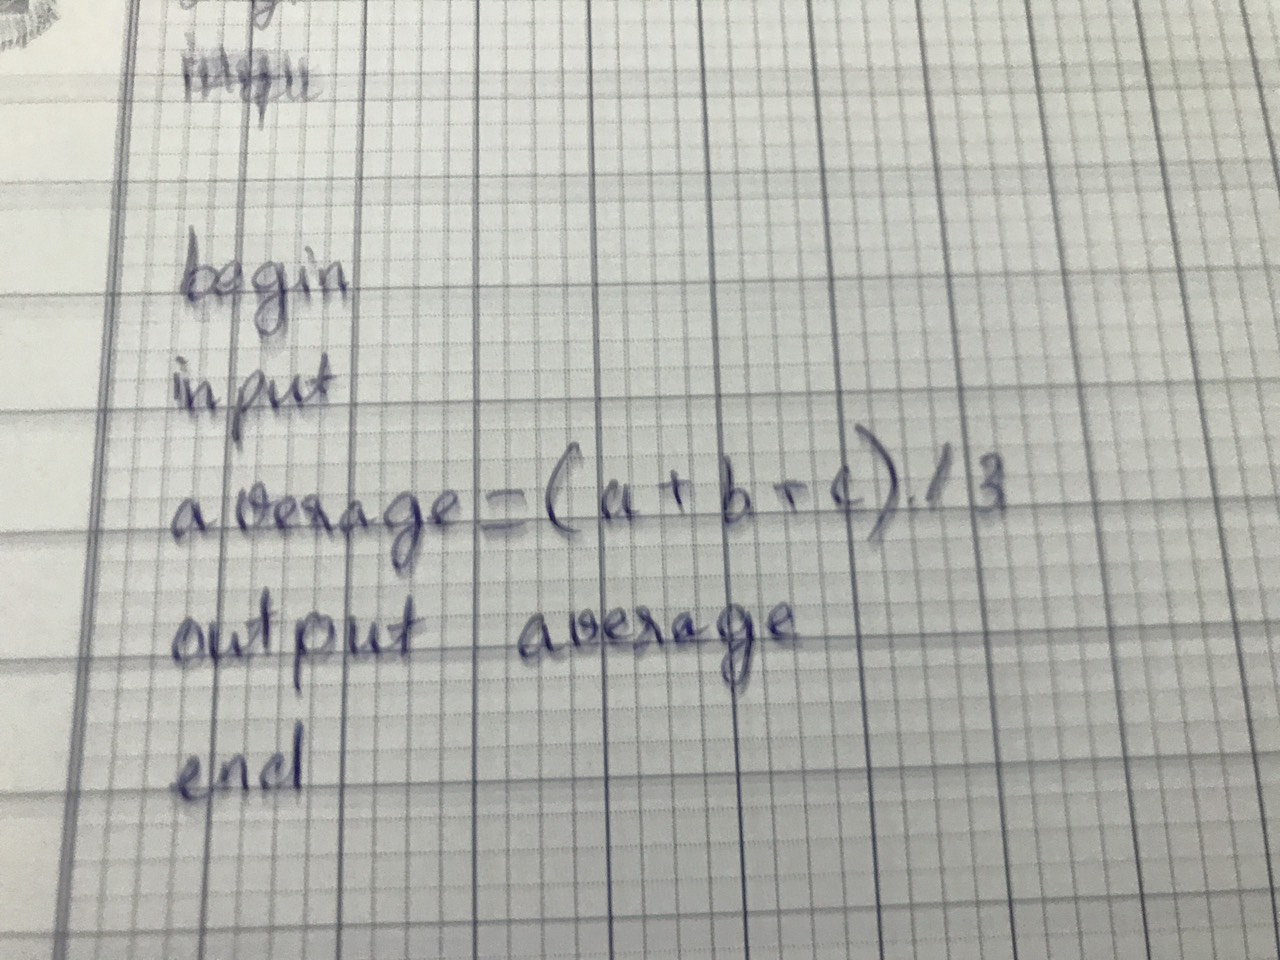 begin
input
average = (a + b + c) / 3
output average
end